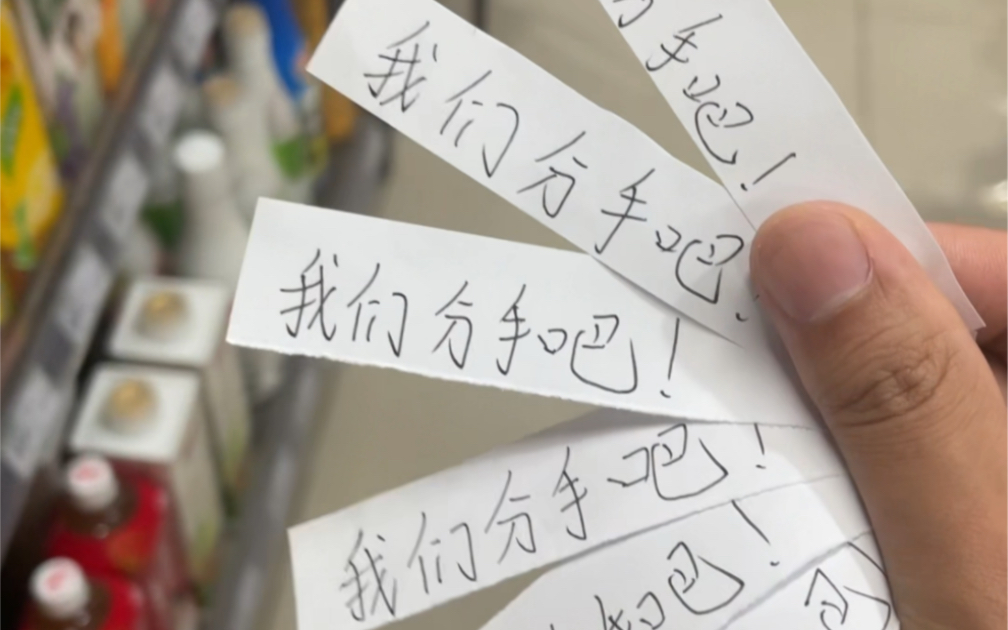 手吧!
我们分手吧!
我们分手吧!
我们分手吧!
吧!